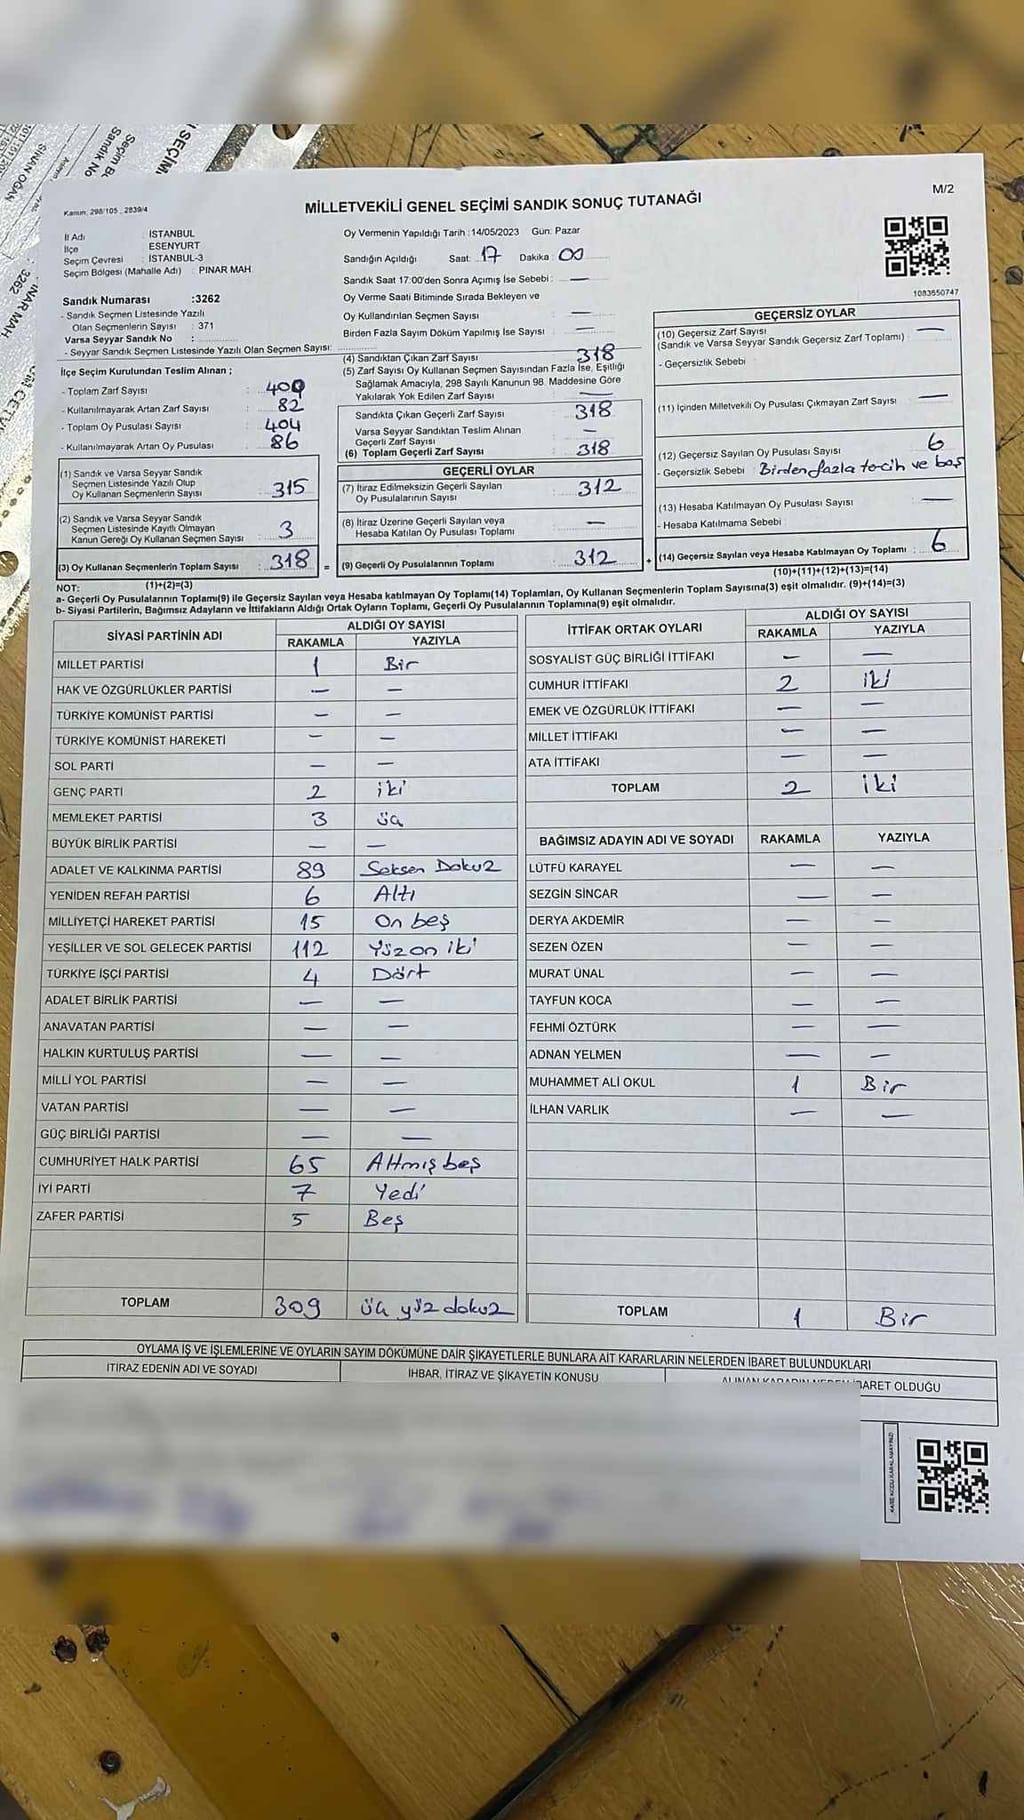 Kanun, 298/105 , 2839/4
MİLLETVEKİLİ GENEL SEÇİMİ SANDIK SONUÇ TUTANAĞI
M/2
İl Adı : İSTANBUL
İlçe : ESENYURT
Seçim Çevresi : İSTANBUL-3
Seçim Bölgesi (Mahalle Adı) : PINAR MAH.
Oy Vermenin Yapıldığı Tarih :14/05/2023 Gün: Pazar
Sandığın Açıldığı Saat: 17 Dakika : 00
Sandık Saat 17:00'den Sonra Açımış İse Sebebi : —
Oy Verme Saati Bitiminde Sırada Bekleyen ve
Oy Kullandırılan Seçmen Sayısı —
Birden Fazla Sayım Döküm Yapılmış İse Sayısı —
1083550747
Sandık Numarası :3262
- Sandık Seçmen Listesinde Yazılı
Olan Seçmenlerin Sayısı : 371
Varsa Seyyar Sandık No :
- Seyyar Sandık Seçmen Listesinde Yazılı Olan Seçmen Sayısı:
İlçe Seçim Kurulundan Teslim Alınan ;
- Toplam Zarf Sayısı : 400
- Kullanılmayarak Artan Zarf Sayısı : 82
- Toplam Oy Pusulası Sayısı : 404
- Kullanılmayarak Artan Oy Pusulası : 86
(1) Sandık ve Varsa Seyyar Sandık
Seçmen Listesinde Yazılı Olup
Oy Kullanan Seçmenlerin Sayısı : 315
(2) Sandık ve Varsa Seyyar Sandık
Seçmen Listesinde Kayıtlı Olmayan
Kanun Gereği Oy Kullanan Seçmen Sayısı : 3
(3) Oy Kullanan Seçmenlerin Toplam Sayısı : 318 =
(4) Sandıktan Çıkan Zarf Sayısı : 318
(5) Zarf Sayısı Oy Kullanan Seçmen Sayısından Fazla İse, Eşitliği
Sağlamak Amacıyla, 298 Sayılı Kanunun 98. Maddesine Göre
Yakılarak Yok Edilen Zarf Sayısı : —
Sandıkta Çıkan Geçerli Zarf Sayısı : 318
Varsa Seyyar Sandıktan Teslim Alınan
Geçerli Zarf Sayısı : —
(6) Toplam Geçerli Zarf Sayısı : 318
GEÇERLİ OYLAR
(7) İtiraz Edilmeksizin Geçerli Sayılan
Oy Pusulalarının Sayısı : 312
(8) İtiraz Üzerine Geçerli Sayılan veya
Hesaba Katılan Oy Pusulası Toplamı : —
(9) Geçerli Oy Pusulalarının Toplamı : 312 +
GEÇERSİZ OYLAR
(10) Geçersiz Zarf Sayısı —
(Sandık ve Varsa Seyyar Sandık Geçersiz Zarf Toplamı) :
- Geçersizlik Sebebi :
(11) İçinden Milletvekili Oy Pusulası Çıkmayan Zarf Sayısı : —
(12) Geçersiz Sayılan Oy Pusulası Sayısı : 6
- Geçersizlik Sebebi : Birden fazla tercih ve boş
(13) Hesaba Katılmayan Oy Pusulası Sayısı : —
- Hesaba Katılmama Sebebi :
(14) Geçersiz Sayılan veya Hesaba Katılmayan Oy Toplamı : 6
NOT: (1)+(2)=(3) (10)+(11)+(12)+(13)=(14)
a- Geçerli Oy Pusulalarının Toplamı(9) ile Geçersiz Sayılan veya Hesaba katılmayan Oy Toplamı(14) Toplamları, Oy Kullanan Seçmenlerin Toplam Sayısına(3) eşit olmalıdır. (9)+(14)=(3)
b- Siyasi Partilerin, Bağımsız Adayların ve İttifakların Aldığı Ortak Oyların Toplamı, Geçerli Oy Pusulalarının Toplamına(9) eşit olmalıdır.
SİYASİ PARTİNİN ADI ALDIĞI OY SAYISI
RAKAMLA YAZIYLA
MİLLET PARTİSİ 1 Bir
HAK VE ÖZGÜRLÜKLER PARTİSİ — —
TÜRKİYE KOMÜNİST PARTİSİ — —
TÜRKİYE KOMÜNİST HAREKETİ — —
SOL PARTİ — —
GENÇ PARTİ 2 iki
MEMLEKET PARTİSİ 3 üç
BÜYÜK BİRLİK PARTİSİ — —
ADALET VE KALKINMA PARTİSİ 89 Seksen Dokuz
YENİDEN REFAH PARTİSİ 6 Altı
MİLLİYETÇİ HAREKET PARTİSİ 15 On beş
YEŞİLLER VE SOL GELECEK PARTİSİ 112 Yüz on iki
TÜRKİYE İŞÇİ PARTİSİ 4 Dört
ADALET BİRLİK PARTİSİ — —
ANAVATAN PARTİSİ — —
HALKIN KURTULUŞ PARTİSİ — —
MİLLİ YOL PARTİSİ — —
VATAN PARTİSİ — —
GÜÇ BİRLİĞİ PARTİSİ — —
CUMHURİYET HALK PARTİSİ 65 Altmış beş
İYİ PARTİ 7 Yedi
ZAFER PARTİSİ 5 Beş
TOPLAM 309 üç yüz dokuz
İTTİFAK ORTAK OYLARI ALDIĞI OY SAYISI
RAKAMLA YAZIYLA
SOSYALİST GÜÇ BİRLİĞİ İTTİFAKI — —
CUMHUR İTTİFAKI 2 iki
EMEK VE ÖZGÜRLÜK İTTİFAKI — —
MİLLET İTTİFAKI — —
ATA İTTİFAKI — —
TOPLAM 2 iki
BAĞIMSIZ ADAYIN ADI VE SOYADI RAKAMLA YAZIYLA
LÜTFÜ KARAYEL — —
SEZGİN SİNCAR — —
DERYA AKDEMİR — —
SEZEN ÖZEN — —
MURAT ÜNAL — —
TAYFUN KOCA — —
FEHMİ ÖZTÜRK — —
ADNAN YELMEN — —
MUHAMMET ALİ OKUL 1 Bir
İLHAN VARLIK — —
TOPLAM 1 Bir
OYLAMA İŞ VE İŞLEMLERİNE VE OYLARIN SAYIM DÖKÜMÜNE DAİR ŞİKAYETLERLE BUNLARA AİT KARARLARIN NELERDEN İBARET BULUNDUKLARI
İTİRAZ EDENİN ADI VE SOYADI İHBAR, İTİRAZ VE ŞİKAYETİN KONUSU OLDUĞU